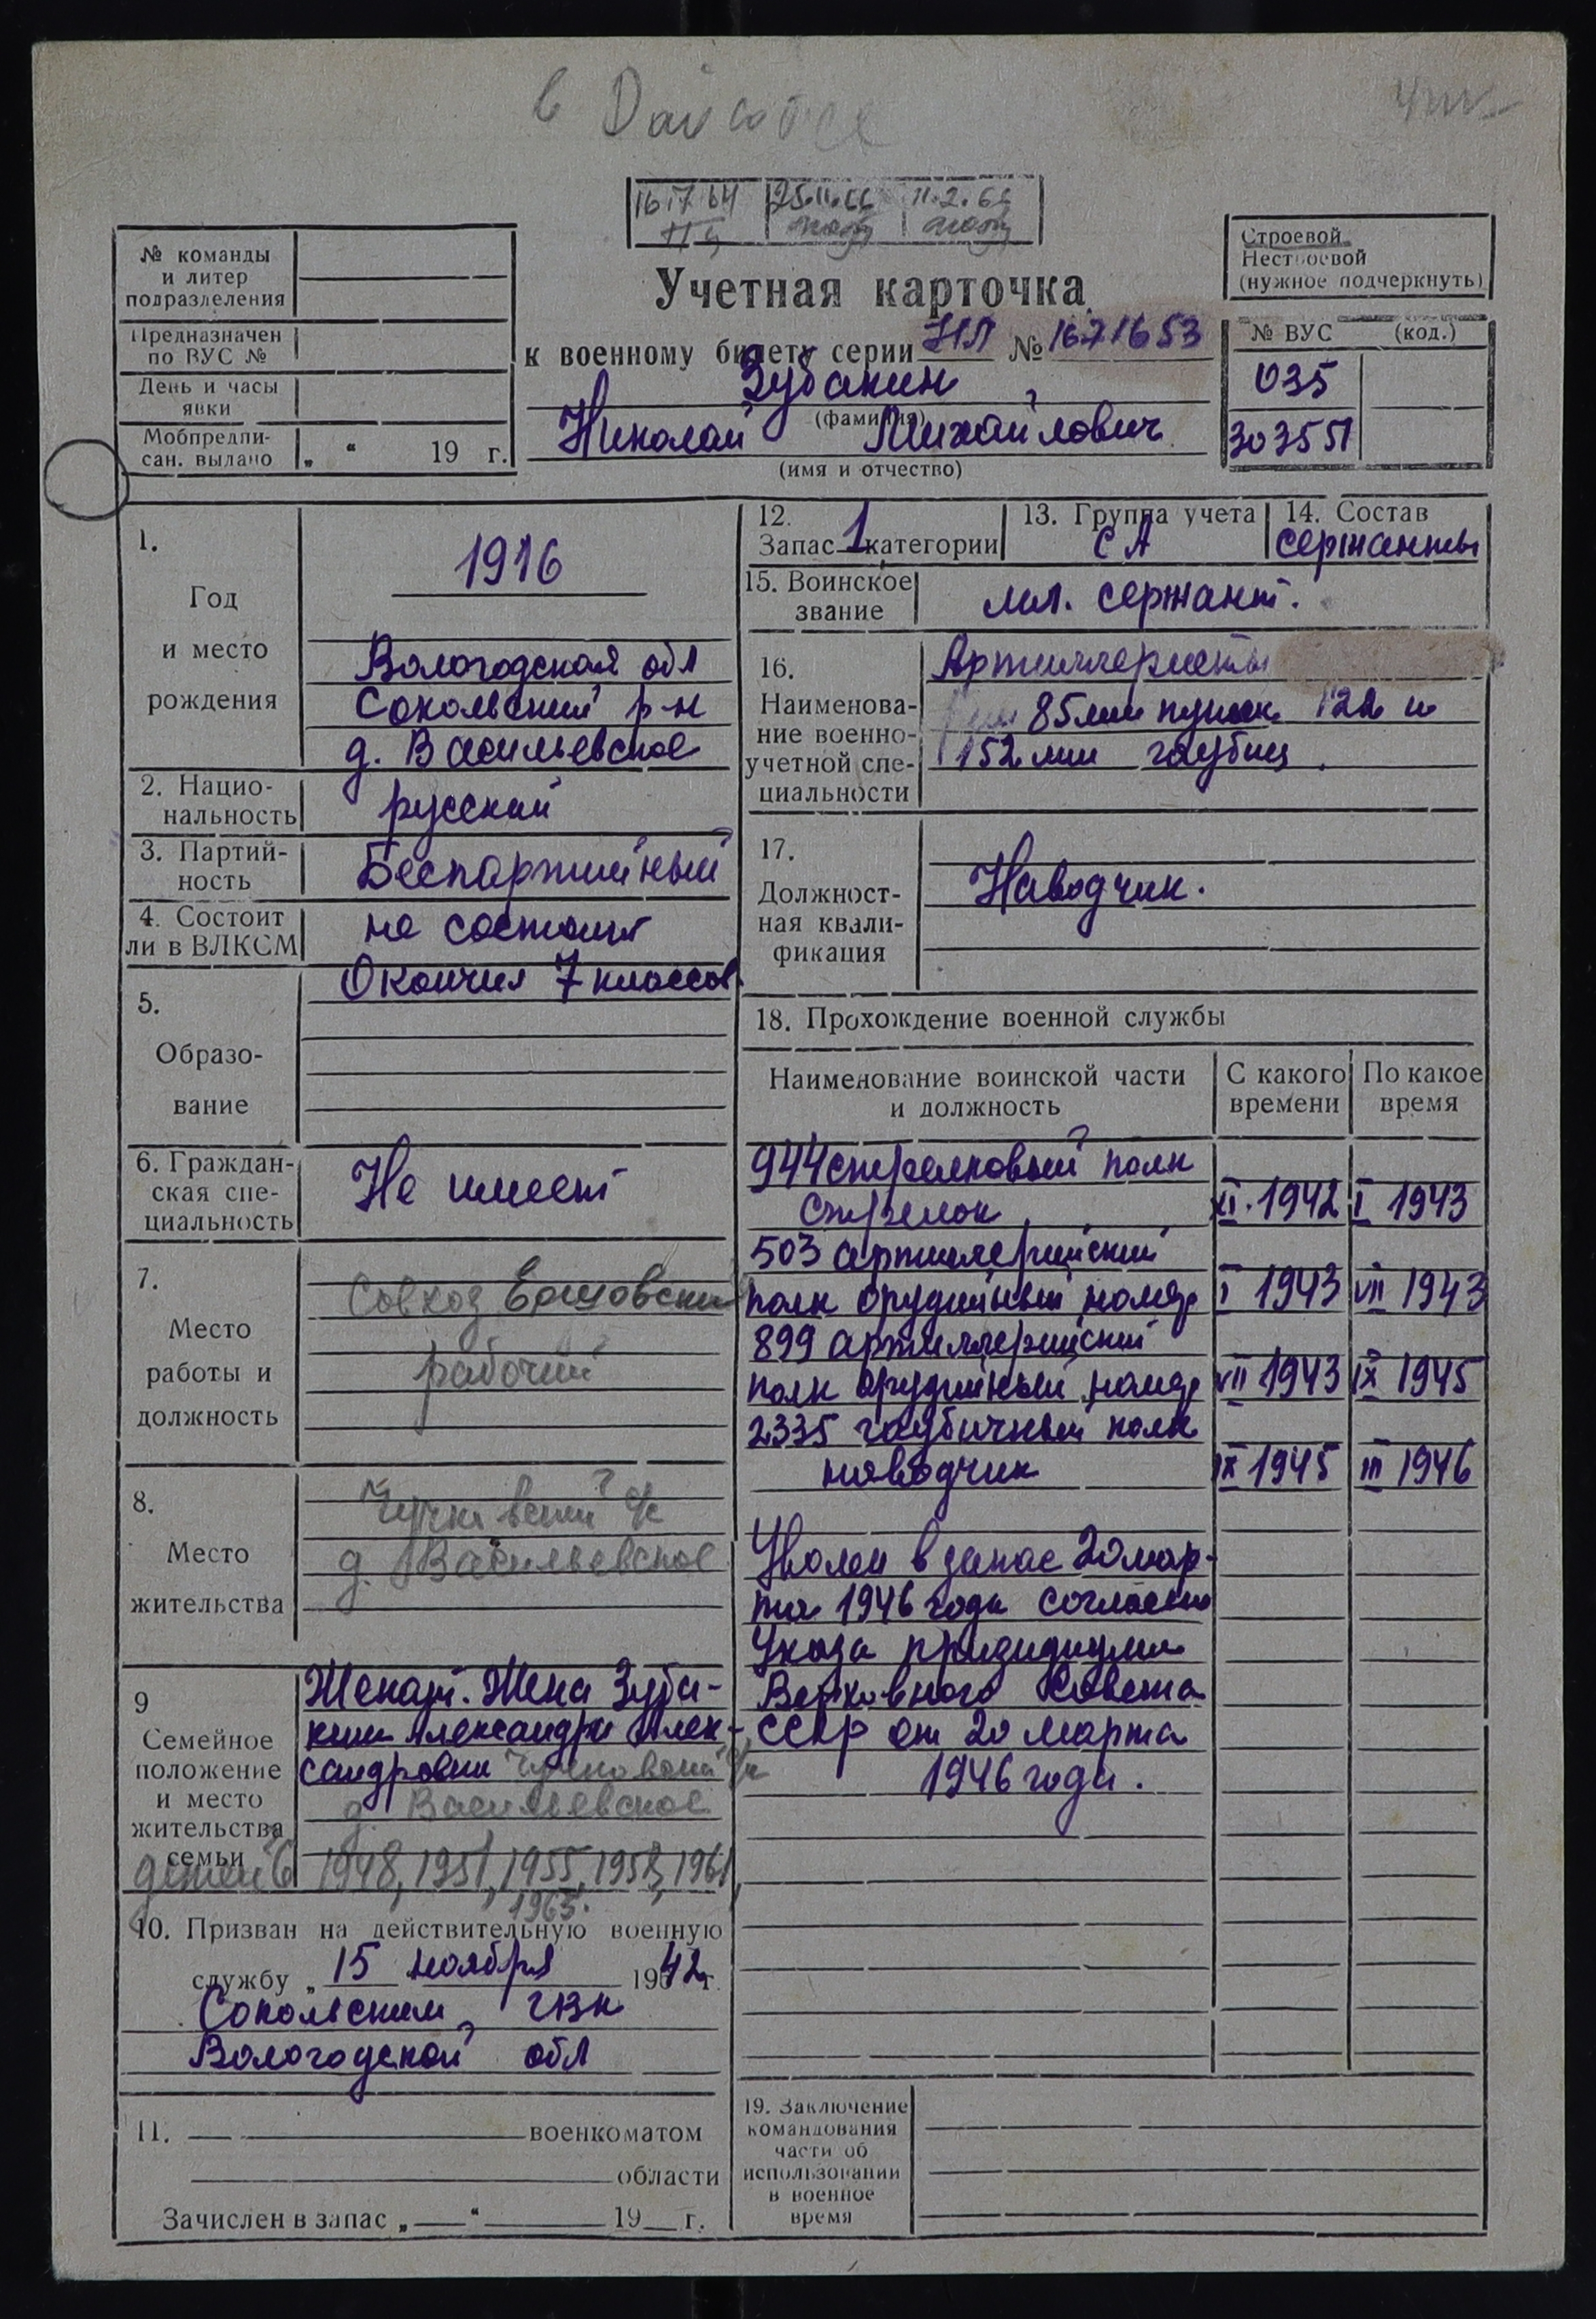 в
16 17 64 25.11.66 11.2.66
Строевой
Нестроевой
(нужное подчеркнуть)
№ команды
и литер
подразделения
Предназначен
по ВУС №
День и часы
явки
Мобпредпи-
сан. выдано „ “ 19 г.
Учетная карточка
к военному билету серии НЛ № 1671653
Зубакин
(фамилия)
Николай Михайлович
(имя и отчество)
№ ВУС (код.)
035
3035П
1.
Год
и место
рождения
1916
Вологодская обл
Сокольский р-н
д. Васильевское
2. Нацио-
нальность
русский
3. Партий-
ность
Беспартийный
4. Состоит
ли в ВЛКСМ
не состоит
5.
Образо-
вание
Окончил 7 классов
6. Граждан-
ская спе-
циальность
Не имеет
7.
Место
работы и
должность
Совхоз
рабочий
8.
Место
жительства
с/с
д. Васильевское
9
Семейное
положение
и место
жительства
семьи
Женат. Жена Зуба-
кина Александра Алек-
сандровна с/с
д. Васильевское
детей 6 1948, 1951, 1955, 1958, 1961,
1963.
10. Призван на действительную военную
службу „ 15 ноября 1942 г.
Сокольским ГВК
Вологодской обл
11. военкоматом
области
Зачислен в запас „ “ 19 г.
12.
Запас 1 категории
13. Группа учета
СА
14. Состав
сержанты
15. Воинское
звание
мл. сержант.
16.
Наименова-
ние военно-
учетной спе-
циальности
Артиллеристы
85мм пушек 122 и
152 мм гаубиц.
17.
Должност-
ная квали-
фикация
Наводчик.
18. Прохождение военной службы
Наименование воинской части
и должность
С какого
времени
По какое
время
944 стрелковый полк
стрелок XI. 1942 I 1943
503 артиллерийский
полк орудийный номер I 1943 VII 1943
899 артиллерийский
полк орудийный номер VII 1943 IX 1945
2335 гаубичный полк
наводчик IX 1945 III 1946
Уволен в запас 20 мар-
та 1946 года согласно
Указа призидиума
Верховного Совета
СССР от 20 марта
1946 года.
19. Заключение
командования
части об
использовании
в военное
время